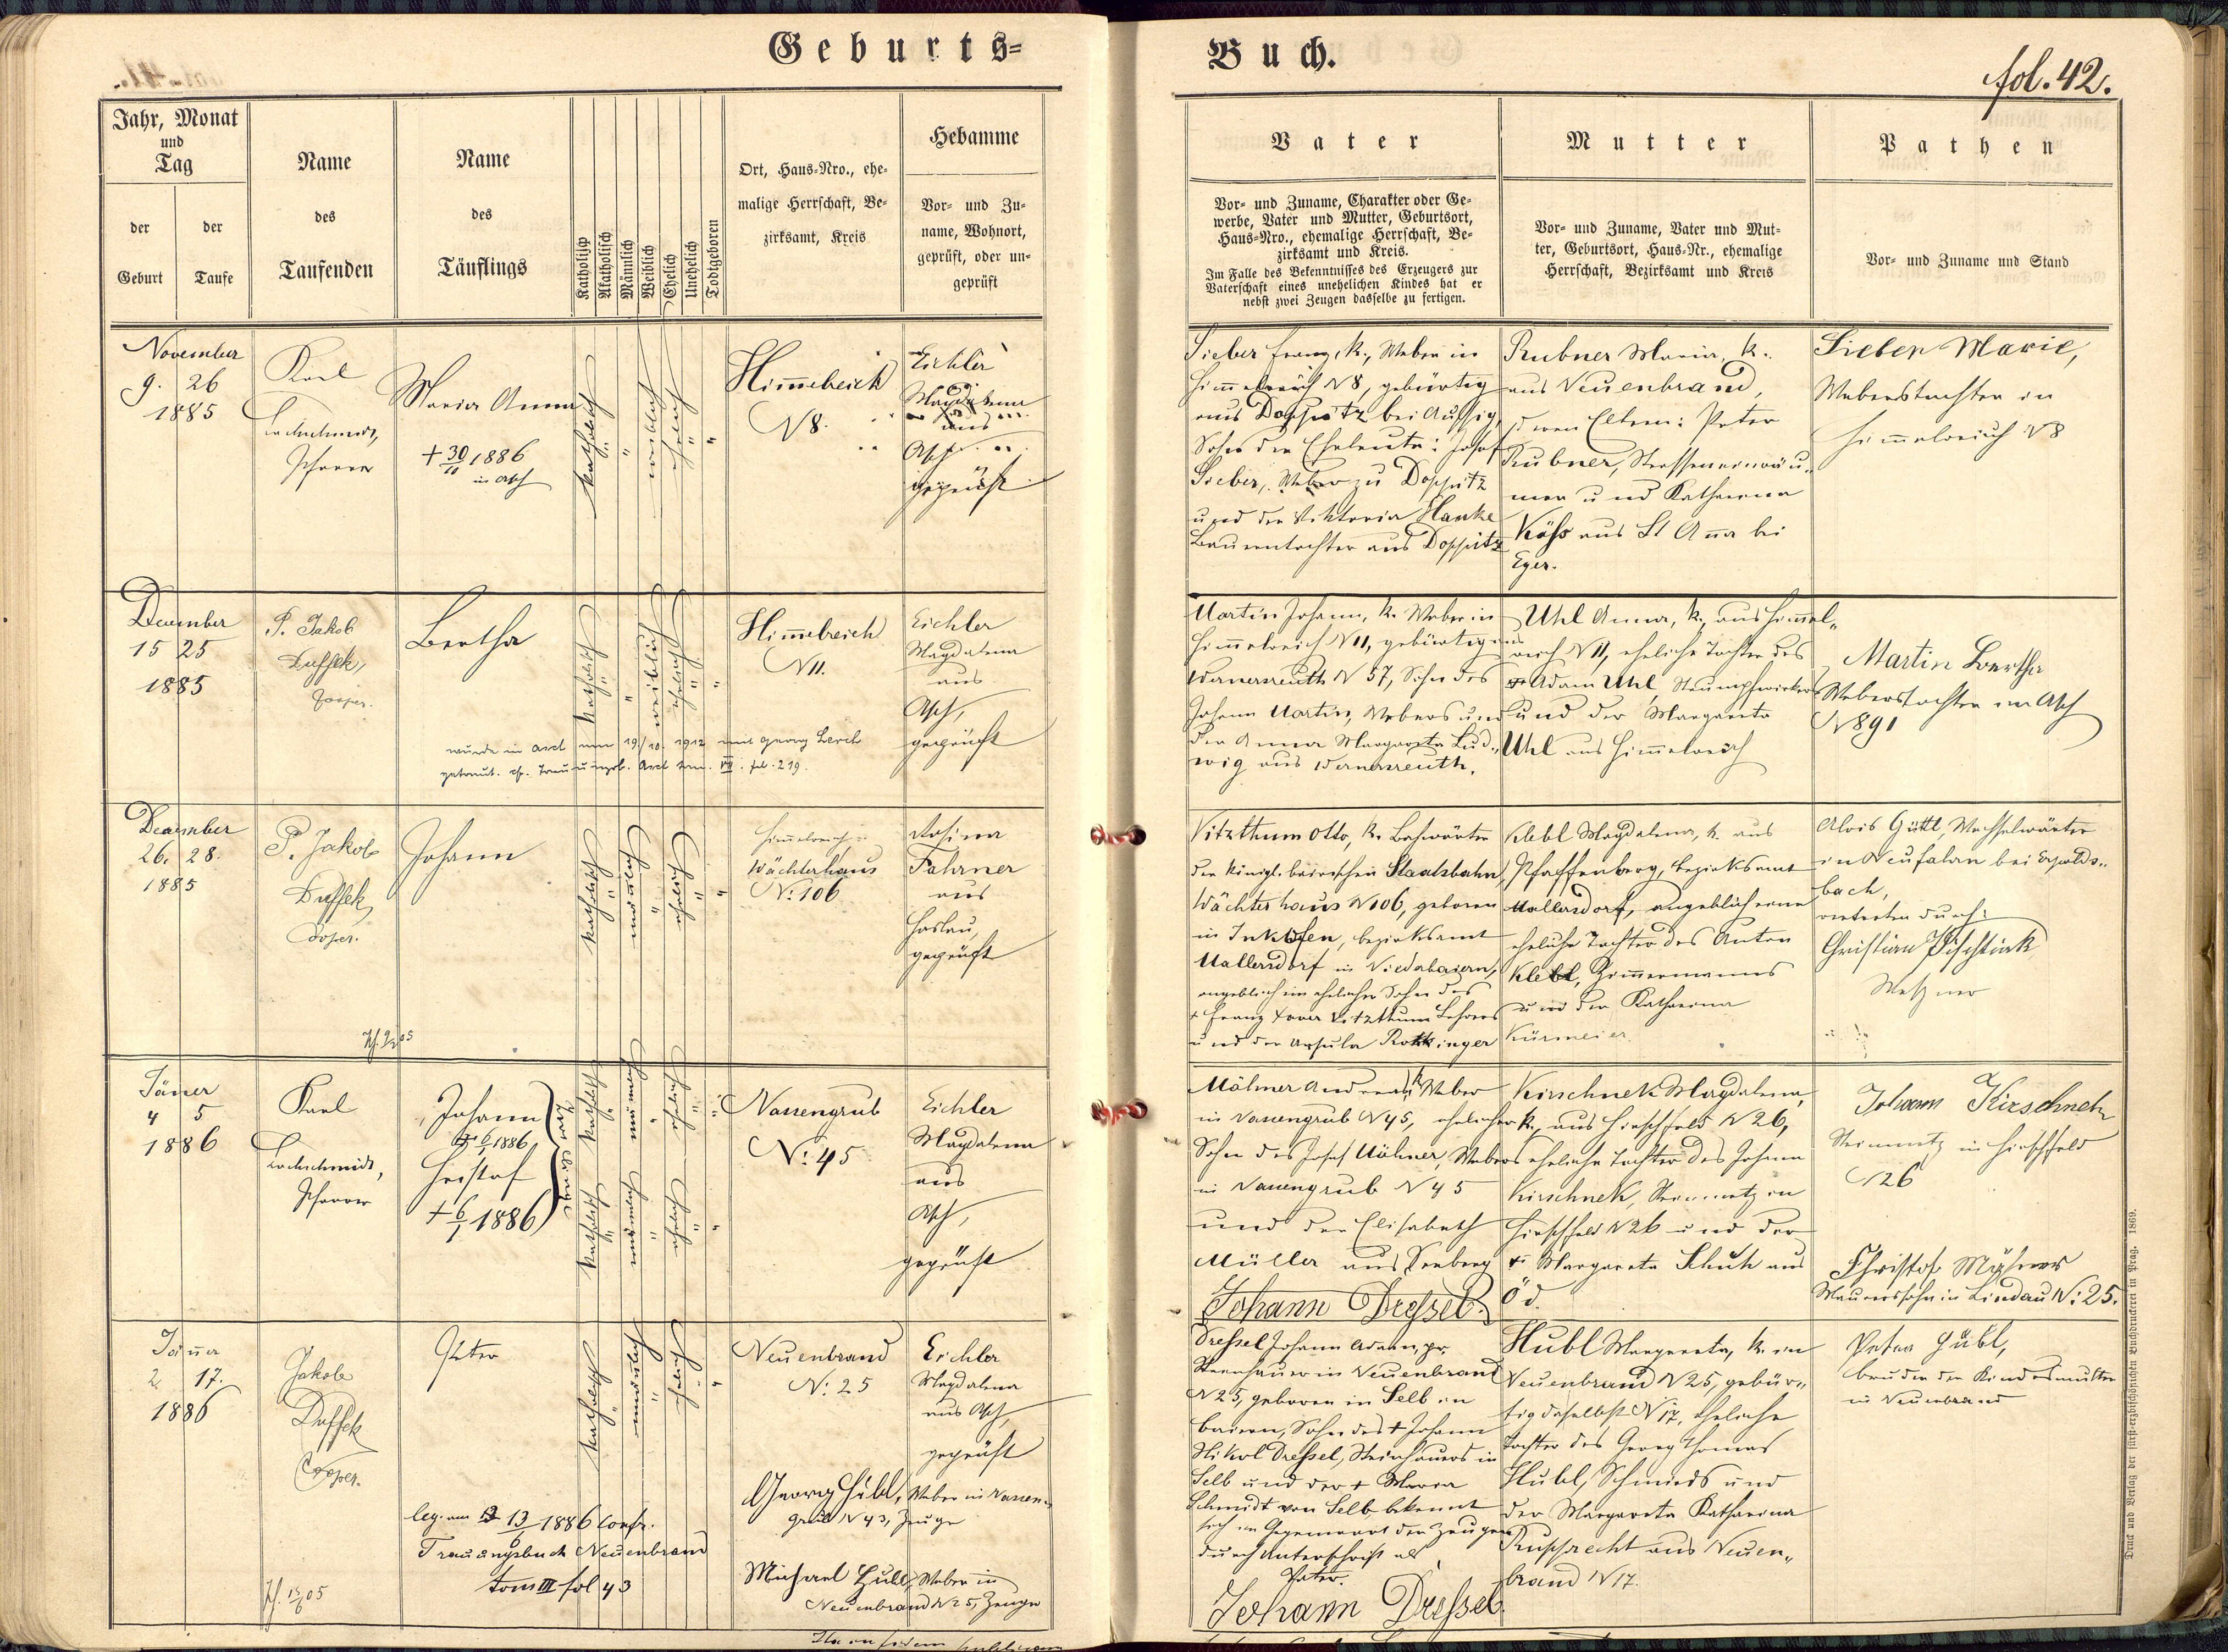 Geburts=
Buch.
fol. 42.
Jahr, Monat
und
Tag
der
Geburt
der
Taufe
Name
des
Taufenden
Name
des
Täuflings
Katholisch
Akatholisch
Männlich
Weiblich
Ehelich
Unehelich
Todtgeboren
Ort, Haus=Nro., ehe=
malige Herrschaft, Be=
zirksamt, Kreis
Hebamme
Vor= und Zu=
name, Wohnort,
geprüft, oder un=
geprüft
Vater
Vor= und Zuname, Charakter oder Ge=
werbe, Vater und Mutter, Geburtsort,
Haus=Nro., ehemalige Herrschaft, Be=
zirksamt und Kreis.
Im Falle des Bekenntnisses des Erzeugers zur
Vaterschaft eines unehelichen Kindes hat er
nebst zwei Zeugen dasselbe zu fertigen.
Mutter
Vor= und Zuname, Vater und Mut=
ter, Geburtsort, Haus=Nr., ehemalige
Herrschaft, Bezirksamt und Kreis
Pathen
Vor= und Zuname und Stand
November
9. 26
1885
Karl
Lochschmidt,
Pfarrer
Maria Anna
+ 30/10 1886
in Asch
katholisch
weiblich
ehelich
Himmelreich
N 8.
Eichler
Magdalena
aus
Asch
geprüft
Sieber Franz, k., Weber in
Himmelreich N 8, gebürtig
aus Doppitz bei Aussig,
Sohn der Eheleute: Josef
Sieber, Weber zu Doppitz
und der Viktoria Hanke
Bauerntochter aus Doppitz
Rubner Maria, k.
aus Neuenbrand,
deren Eltern: Peter
Rubner, Strasseneinräu=
mer und Katharina
Köhs aus St Anna bei
Eger.
Sieber Marie,
Weberstochter in
Himmelreich N 8
December
15 25
1885
P. Jakob
Duffek,
Cooper.
Bertha
katholisch
weiblich
ehelich
Himmelreich
N 11.
Eichler
Magdalena
aus
Asch,
geprüft
wurde in Asch am 19./10. 1912 mit Georg Lerch
getraut. cf. Trauungsb. Asch tom. VII. fol. 219.
Martin Johann, k. Weber in
Himmelreich N 11, gebürtig aus
Wernersreuth N 57, Sohn des
Johann Martin, Webers und
der Anna Margareta Lud=
wig aus Wernersreuth.
Uhl Anna, k., aus Himmel=
reich N 11, eheliche Tochter des
Adam Uhl, Strumpfwirkers
und der Margareta
Uhl aus Himmelreich
Martin Bertha
Weberstochter in Asch
N 891
December
26. 28.
1885
P. Jakob
Duffek
Cooper.
Johann
katholisch
männlich
ehelich
Himmelreich,
Wächterhaus
No. 106
Rosina
Fahrner
aus
Haslau,
geprüft
Vitzthum Otto, k. Bahnwärter
der königl. bairischen Staatsbahn,
Wächterhaus N 106, geboren
in Inkofen, Bezirksamt
Mallersdorf in Niederbaiern,
angeblich ein ehelicher Sohn des
+ Franz Xaver Vitzthum Lehrers
und der Ursula Rottinger
Klebl Magdalena, k. aus
Pfaffenberg, Bezirksamt
Mallersdorf, angeblich eine
eheliche Tochter des Anton
Klebl, Zimmermanns
und der Katharina
Kürmeier
Alois Gültl, Wechselwärter
in Neufahrn bei Ergolds=
bach,
vertreten durch:
Christian Pischtiak
Messner
Jäner
4 5
1886
Karl
Lochschmidt,
Pfarrer
Johann
+ 6/1 1886
Christof
+ 6/1 1886
Zwillinge
katholisch
männlich
ehelich
katholisch
männlich
ehelich
Nassengrub
No. 45
Eichler
Magdalena
aus
Asch,
geprüft
Mähner Andreas, k. Weber
in Nassengrub N 45, ehelicher
Sohn des Josef Mähner, Webers
in Nassengrub N 45
und der Elisabeth
Müller aus Seeberg
Kirschnek Magdalena,
k., aus Hirschfeld N 26,
eheliche Tochter des Johann
Kirschnek, Steinmetz in
Hirschfeld N 26 und der
+ Margareta Schuh aus
Öd.
Johann Kirschnek
Steinmetz in Hirschfeld
N 26
Christof Mähner
Maurerssohn in Lindau No. 25.
Johann Dressel.
Jäner
2. 17.
1886
Jakob
Duffek
Cooper.
Peter
katholisch
männlich
ehelich
Neuenbrand
No. 25
Eichler
Magdalena
aus Asch
geprüft
leg. am 13/6 1886 confr.
Trauungsbuch Neuenbrand
tom III fol 43
Georg Hübl, Weber in Nassen=
grub N 43, Zeuge
Michael Hubl, Weber in
Neuenbrand N 25, Zeuge
Dressel Johann Adam, pr.
Steinhauer in Neuenbrand
N 25, geboren in Selb in
Baiern, Sohn des + Johann
Nikol Dressel, Steinhauers in
Selb und der + Maria
Schmidt von Selb bekennt
sich in Gegenwart der Zeugen
durch Unterschrift als
Vater.
Johann Dressel.
Hubl Margareta, k. in
Neuenbrand N 25, gebür=
tig daselbst N 17, eheliche
Tochter des Georg Thomas
Hubl, Schmieds und
der Margareta Katharina
Rupprecht aus Neuen=
brand N 17.
Peter Hübl,
Bruder der Kindesmutter
in Neuenbrand
Druck und Verlag der fürst=erzbischöflichen Buchdruckerei in Prag. 1869.